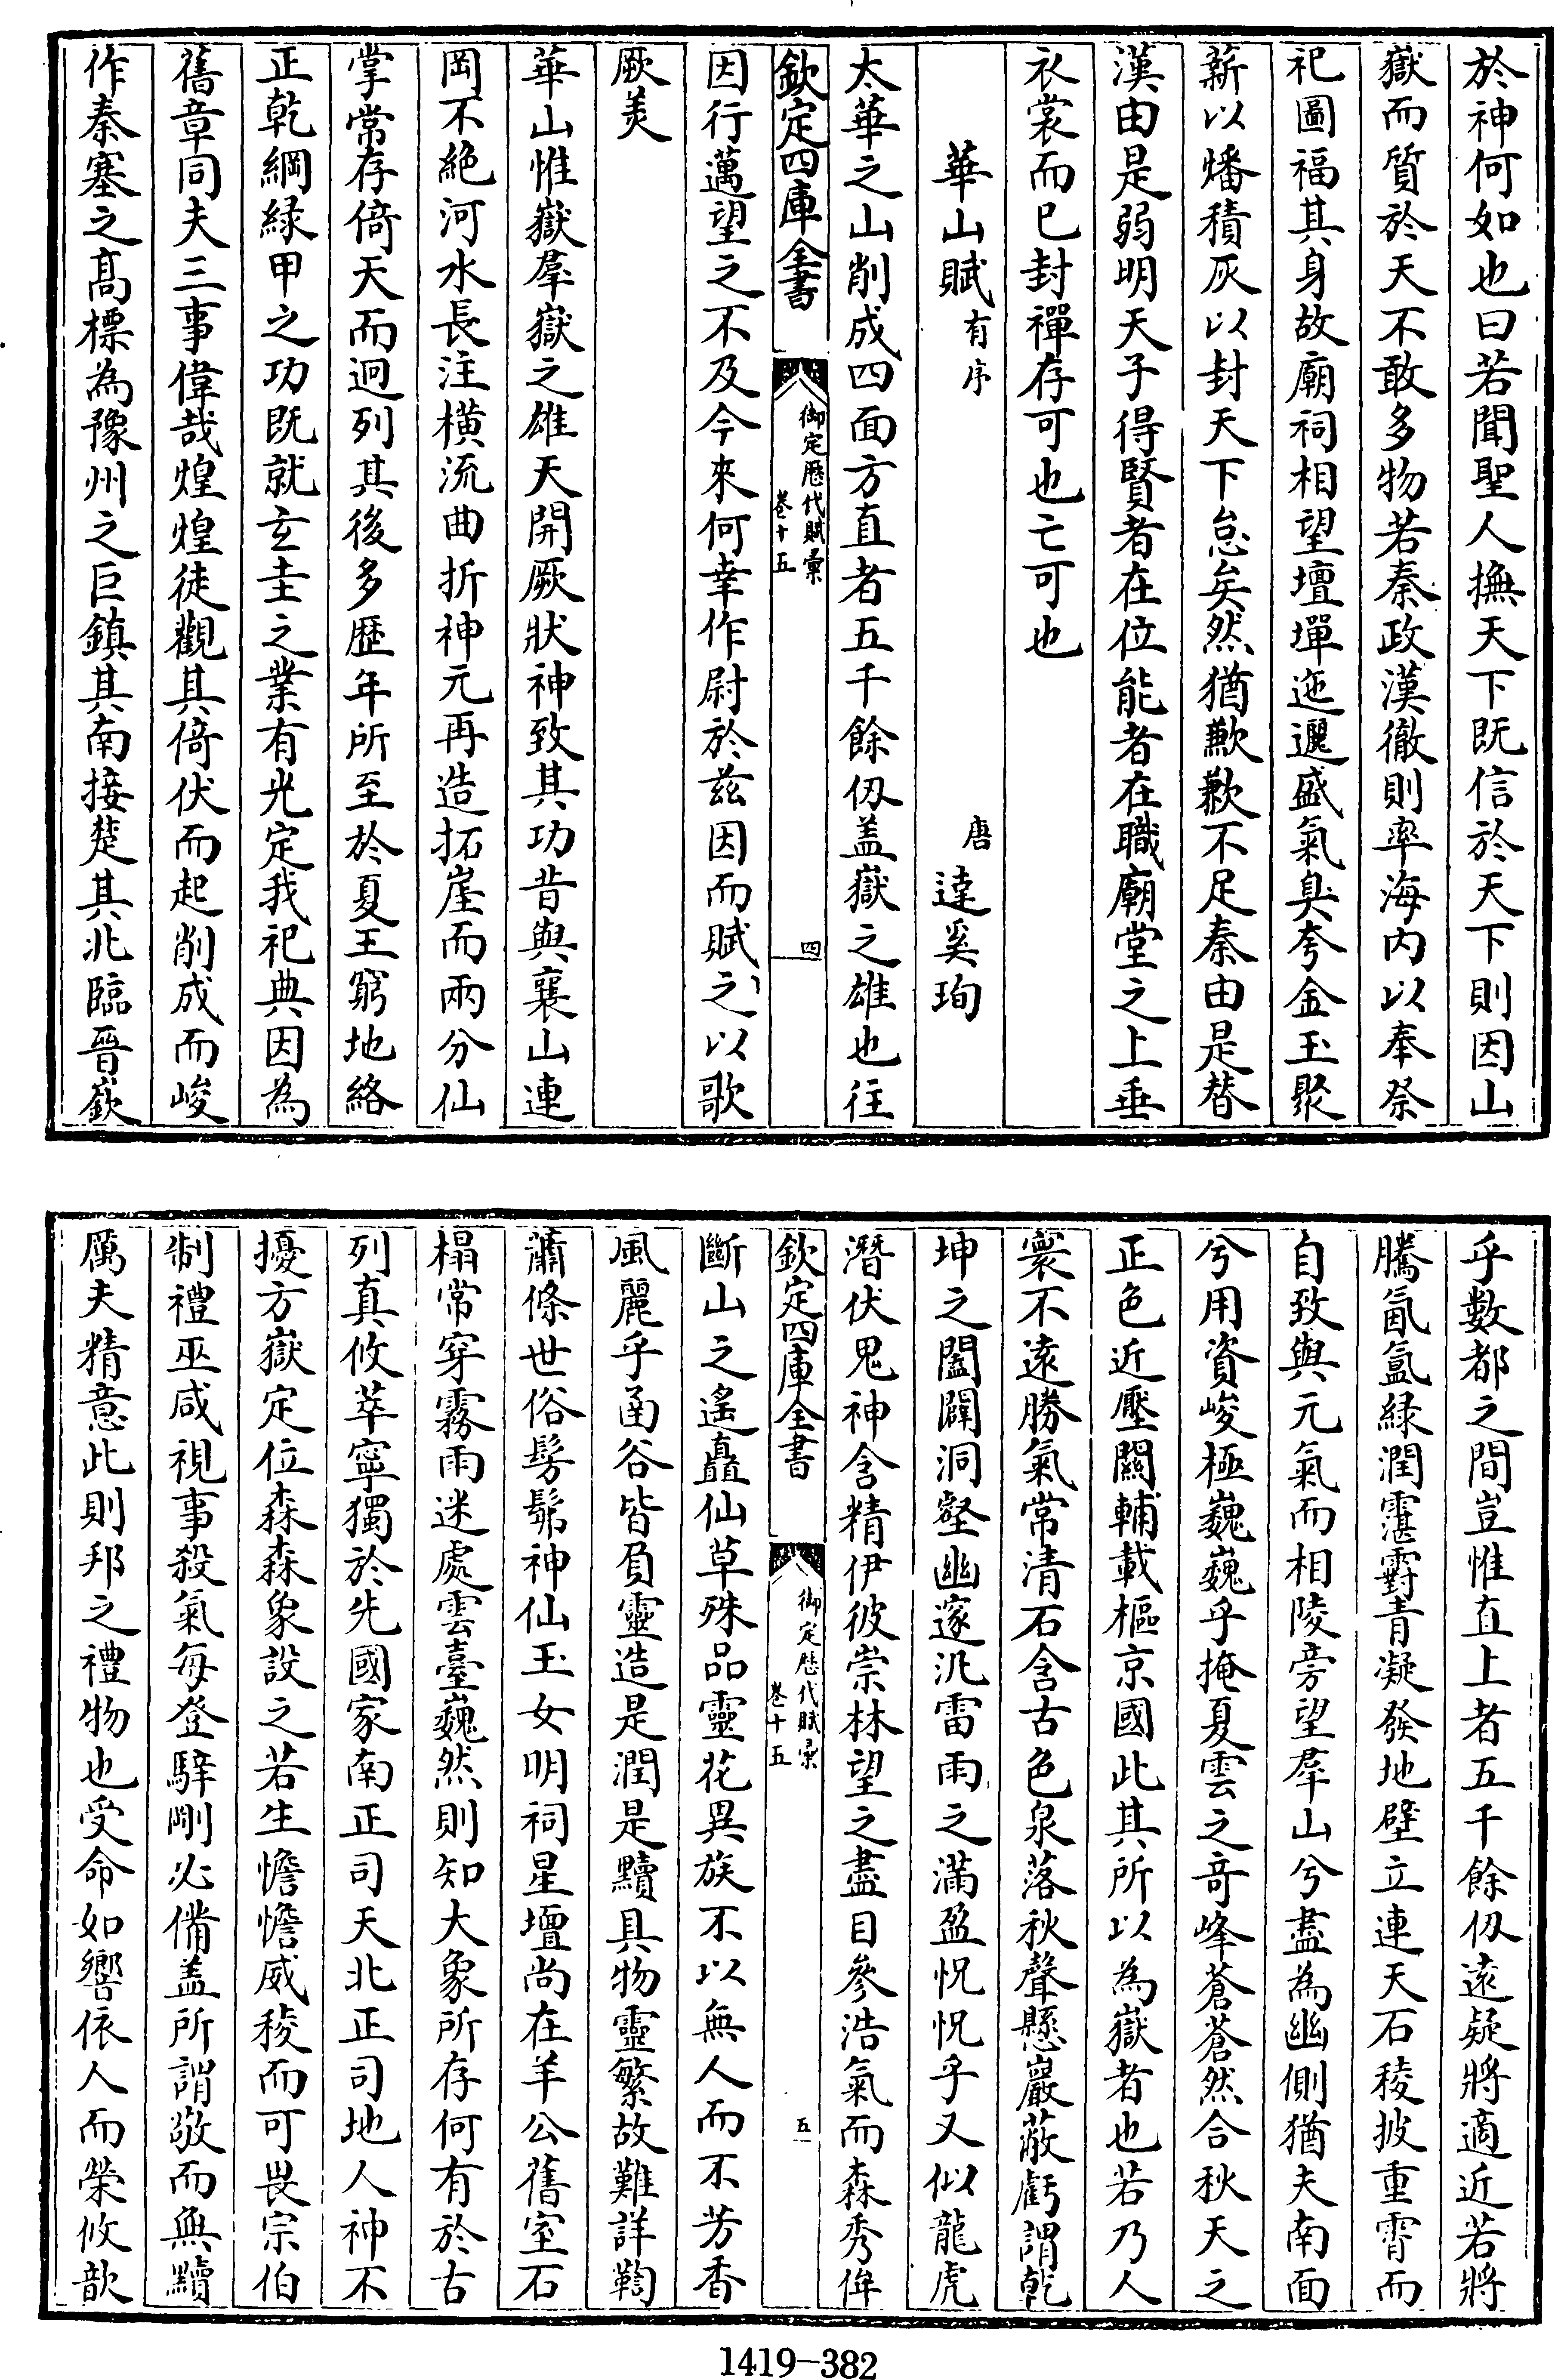 於神何如也曰若聞聖人撫天下既信於天下則因山
嶽而質於天不敢多物若秦政漢徹則率海内以奉祭
祀圖福其身故廟祠相望壇墠迤邐盛氣臭夸金玉聚
薪以燔積灰以封天下怠矣然猶歉歉不足秦由是替
漢由是弱明天子得賢者在位能者在職廟堂之上垂
衣裳而已封禪存可也亡可也
華山賦有序 唐 達奚珣
太華之山削成四面方直者五千餘仭盖嶽之雄也往
欽定四庫全書 御定歴代賦彚 卷十五 四
因行邁望之不及今來何幸作尉於兹因而賦之以歌
厥美
華山惟嶽羣嶽之雄天開厥狀神致其功昔與襄山連
岡不絶河水長注橫流曲折神元再造拓崖而兩分仙
掌常存倚天而迥列其後多歴年所至於夏王窮地絡
正乾綱緑甲之功既就玄圭之業有光定我祀典因為
舊章同夫三事偉哉煌煌徒觀其倚伏而起削成而峻
作秦塞之髙標為豫州之巨鎮其南接楚其北臨晉嶔
乎數都之間豈惟直上者五千餘仭遠疑將適近若將
騰氤氲緑潤霮䨴青凝發地壁立連天石稜披重霄而
自致與元氣而相陵旁望羣山兮盡為幽側猶夫南面
兮用資峻極巍巍乎掩夏雲之奇峰蒼蒼然合秋天之
正色近壓關輔載樞京國此其所以為嶽者也若乃人
寰不遠勝氣常清石含古色泉落秋聲懸巖蔽虧謂乾
坤之闔闢洞壑幽邃汎雷雨之滿盈怳怳乎又似龍虎
潛伏鬼神含精伊彼崇林望之盡目參浩氣而森秀侔
欽定四庫全書 御定歴代賦彚 卷十五 五
斷山之遙矗仙草殊品靈花異族不以無人而不芳香
風麗乎函谷皆負靈造是潤是黷具物靈繁故難詳鞫
蕭條世俗髣髴神仙玉女明祠星壇尚在羊公舊室石
榻常穿霧雨迷處雲臺巍然則知大象所存何有於古
列真攸萃寧獨於先國家南正司天北正司地人神不
擾方嶽定位森森象設之若生憺憺威稜而可畏宗伯
制禮巫咸視事殺氣每登騂剛必備盖所謂敬而無黷
厲夫精意此則邦之禮物也受命如響依人而榮攸歆
1419-382